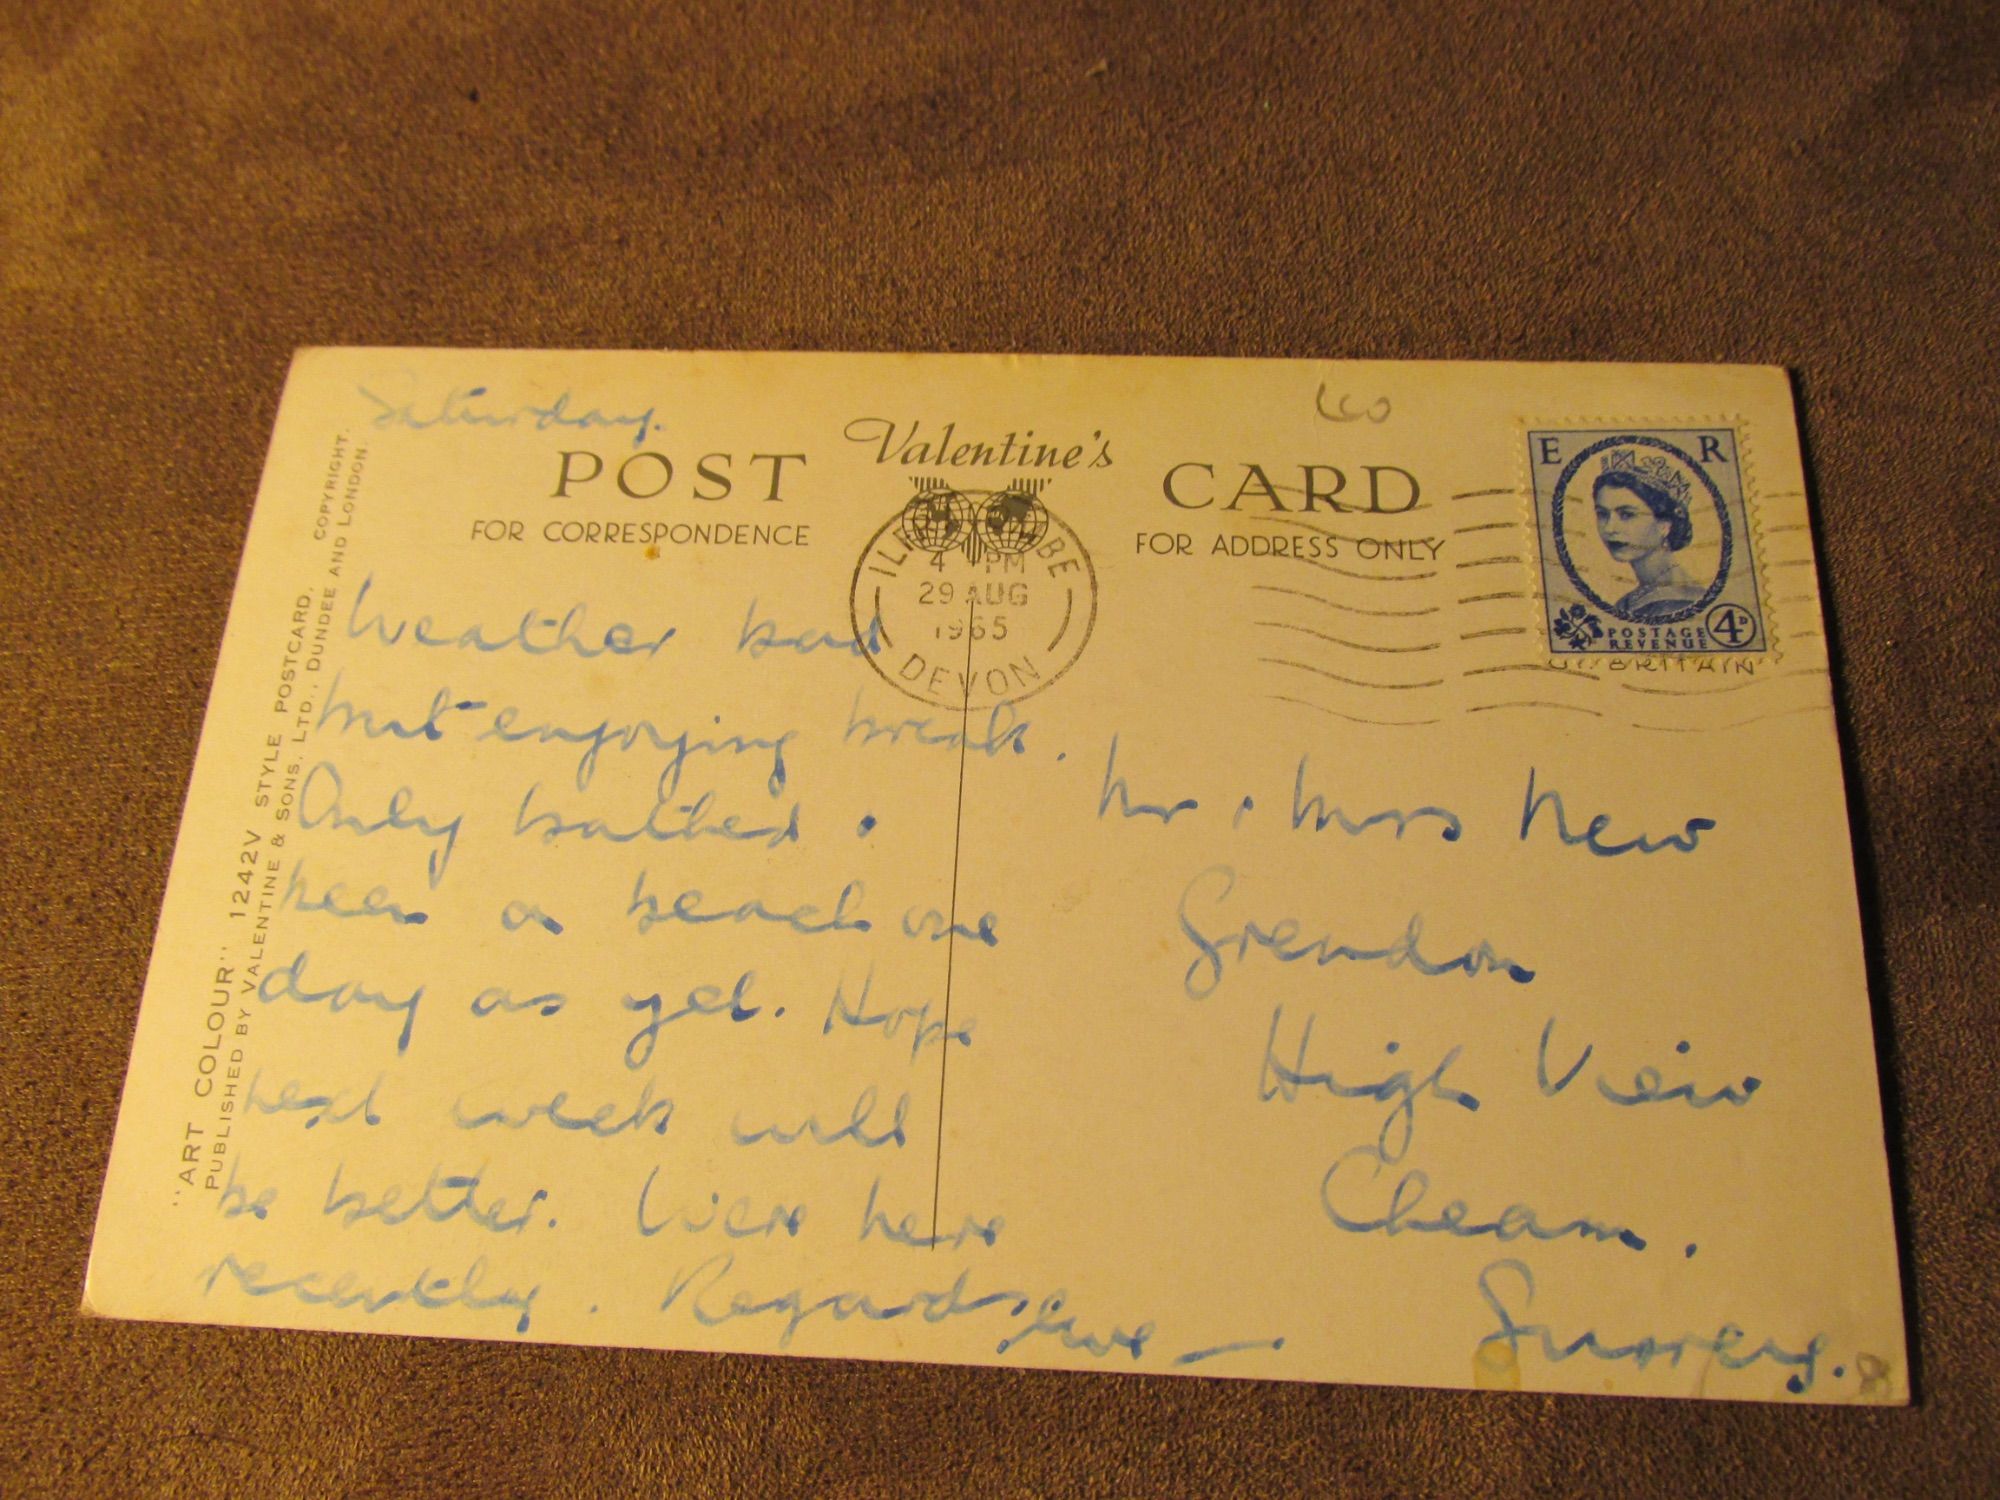 Saturday.
Valentine's
POST CARD
FOR CORRESPONDENCE
FOR ADDRESS ONLY
E R
POSTAGE
REVENUE
4D
BRITAIN
4 PM
29 AUG
1965
DEVON
"ART COLOUR" 1242V STYLE POSTCARD. COPYRIGHT.
PUBLISHED BY VALENTINE & SONS, LTD., DUNDEE AND LONDON.
Weather bad
but enjoying break.
Only bathed &
been on beach one
day as yet. Hope
next week will
be better. Were here
recently. Regards
Mr & Mrs New
Grendon
High View
Cheam.
Surrey.